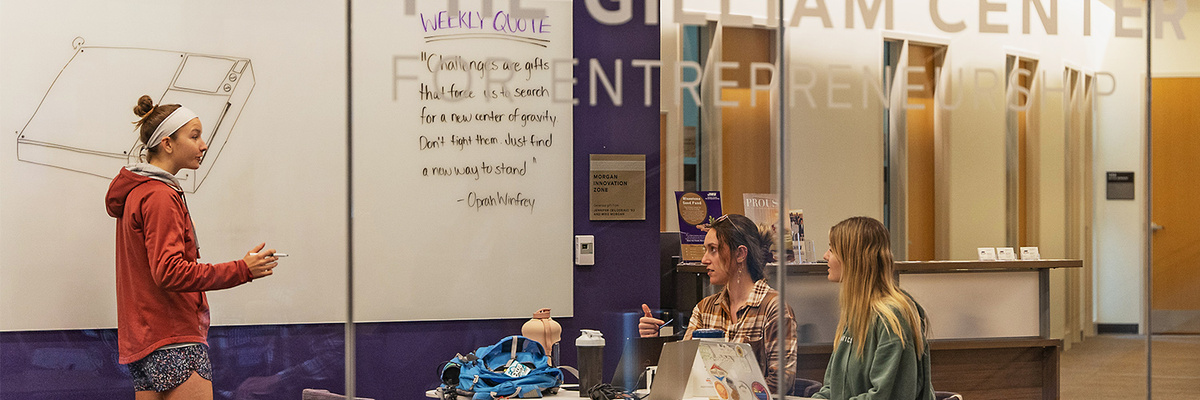 THE GILLIAM CENTER
FOR ENTREPRENEURSHIP
WEEKLY QUOTE
"Challenges are gifts
that force us to search
for a new center of gravity.
Don't fight them. Just find
a new way to stand"
- Oprah Winfrey
MORGAN
INNOVATION
ZONE